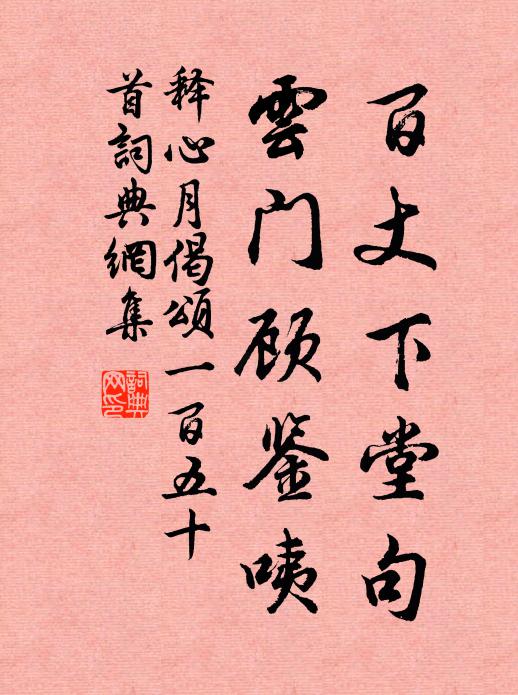 百丈下堂句
雲门顾鉴咦
释心月偈頌一百五十
首詞典網集
詞典
网印